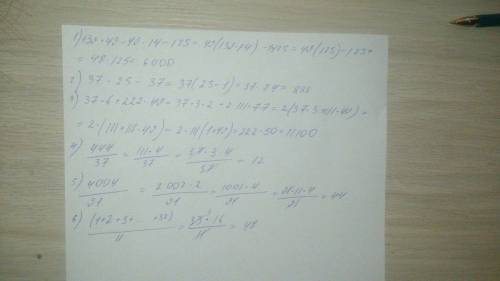 1) 139 · 49 - 49 · 14 - 125 = 49(139-14) - 125 = 49(125) - 125 =
= 48 · 125 = 6000
2) 37 · 25 - 37 = 37(25-1) = 37 · 24 = 888
3) 37 · 6 + 222 · 49 = 37 · 3 · 2 + 2 · 111 · 49 = 2(37 · 3 + 111 · 49) =
= 2 · (111 + 111 · 49) = 2 · 111(1+49) = 222 · 50 = 11100
4) 444/37 = 111 · 4/37 = 37 · 3 · 4/37 = 12
5) 4004/91 = 2002 · 2/91 = 1001 · 4/91 = 91 · 11 · 4/91 = 44
6) (1+2+3+ ... +32)/11 = 33 · 16/11 = 48